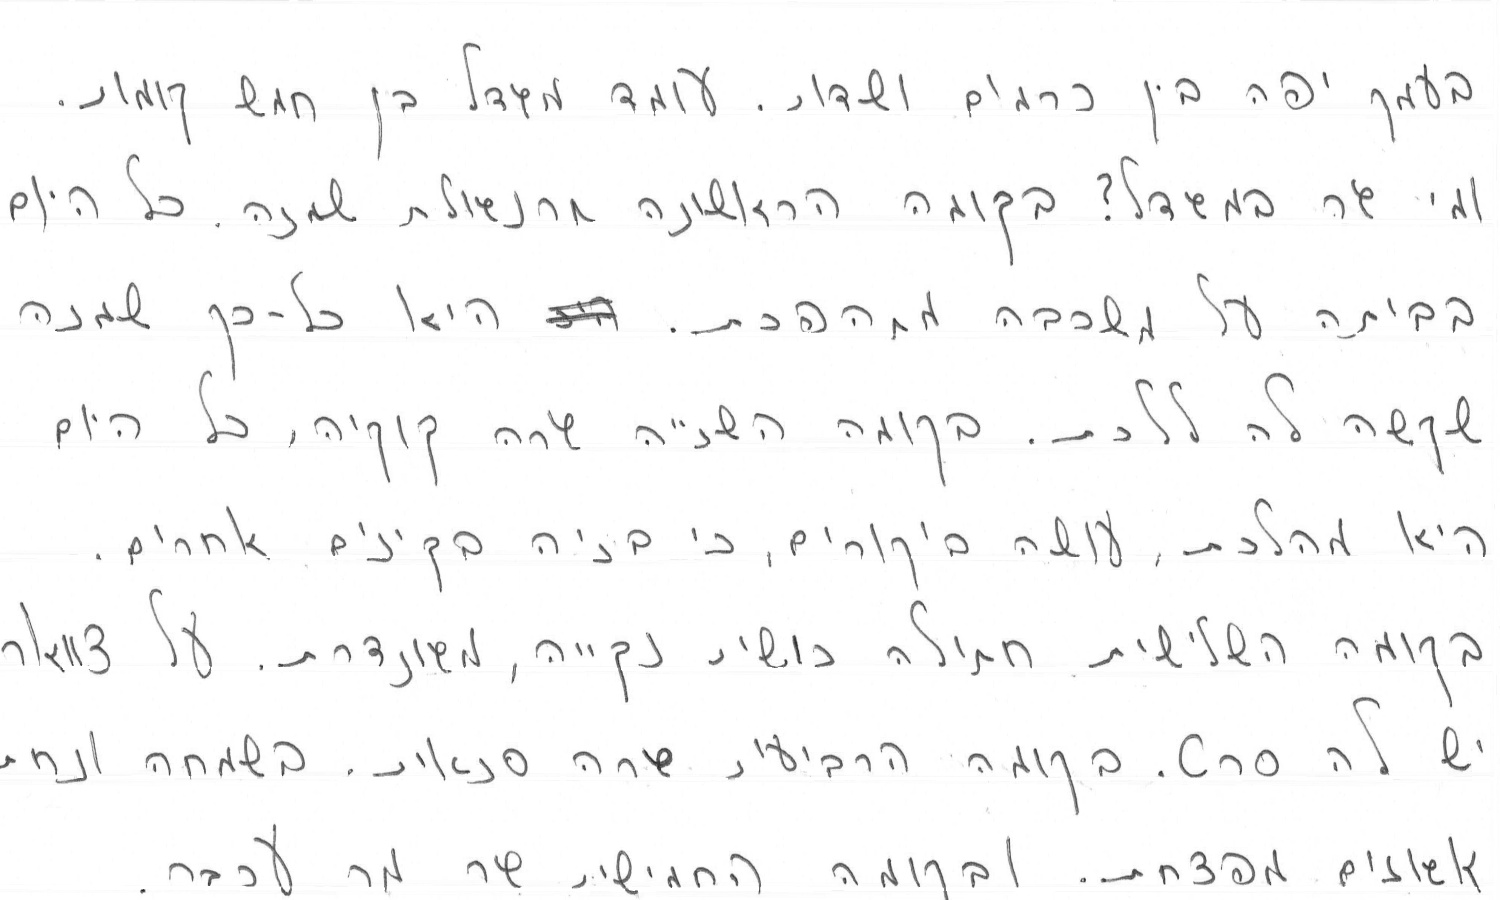 בעמק יפה בין כרמים ושדות. עומד מגדל בן חמש קומות.
ומי גר במגדל? בקומה הראשונה תרנגולת שמנה. כל היום
בביתה על משכבה מתהפכת. היא כל-כך שמנה
שקשה לה ללכת. בקומה השנייה גרה קוקיה, כל היום
היא מהלכת, עושה ביקורים, כי בניה בקינים אחרים.
בקומה השלישית חתולה כושית נקייה, מגונדרת. על צווארה
יש לה סרט. בקומה הרביעית גרה סנאית. בשמחה ונחת
אגוזים מפצחת. ובקומה החמישית גר מר עכבר.